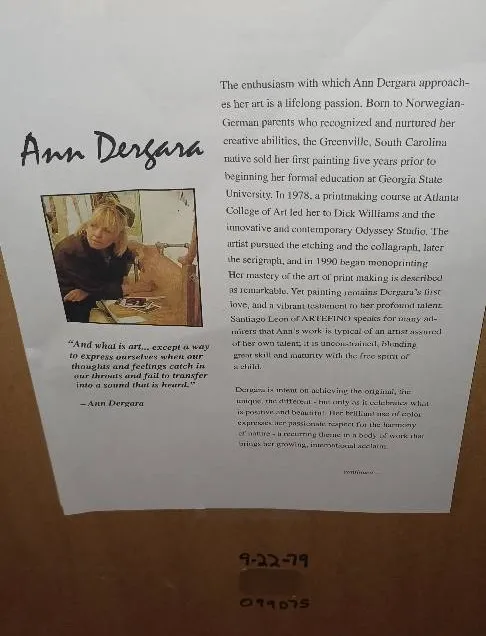 Ann Dergara
"And what is art... except a way
to express ourselves when our
thoughts and feelings catch in
our throats and fail to transfer
into a sound that is heard."
– Ann Dergara
The enthusiasm with which Ann Dergara approach-
es her art is a lifelong passion. Born to Norwegian-
German parents who recognized and nurtured her
creative abilities, the Greenville, South Carolina
native sold her first painting five years prior to
beginning her formal education at Georgia State
University. In 1978, a printmaking course at Atlanta
College of Art led her to Dick Williams and the
innovative and contemporary Odyssey Studio. The
artist pursued the etching and the collagraph, later
the serigraph, and in 1990 began monoprinting.
Her mastery of the art of print making is described
as remarkable. Yet painting remains Dergara's first
love, and a vibrant testiment to her profound talent.
Santiago Leon of ARTEFINO speaks for many ad-
mirers that Ann's work is typical of an artist assured
of her own talent; it is unconstrained, blending
great skill and maturity with the free spirit of
a child.
Dergara is intent on achieving the original, the
unique, the different - but only as it celebrates what
is positive and beautiful. Her brilliant use of color
expresses her passionate respect for the harmony
of nature - a recurring theme in a body of work that
brings her growing, international acclaim.
continued...
9-22-79
099075